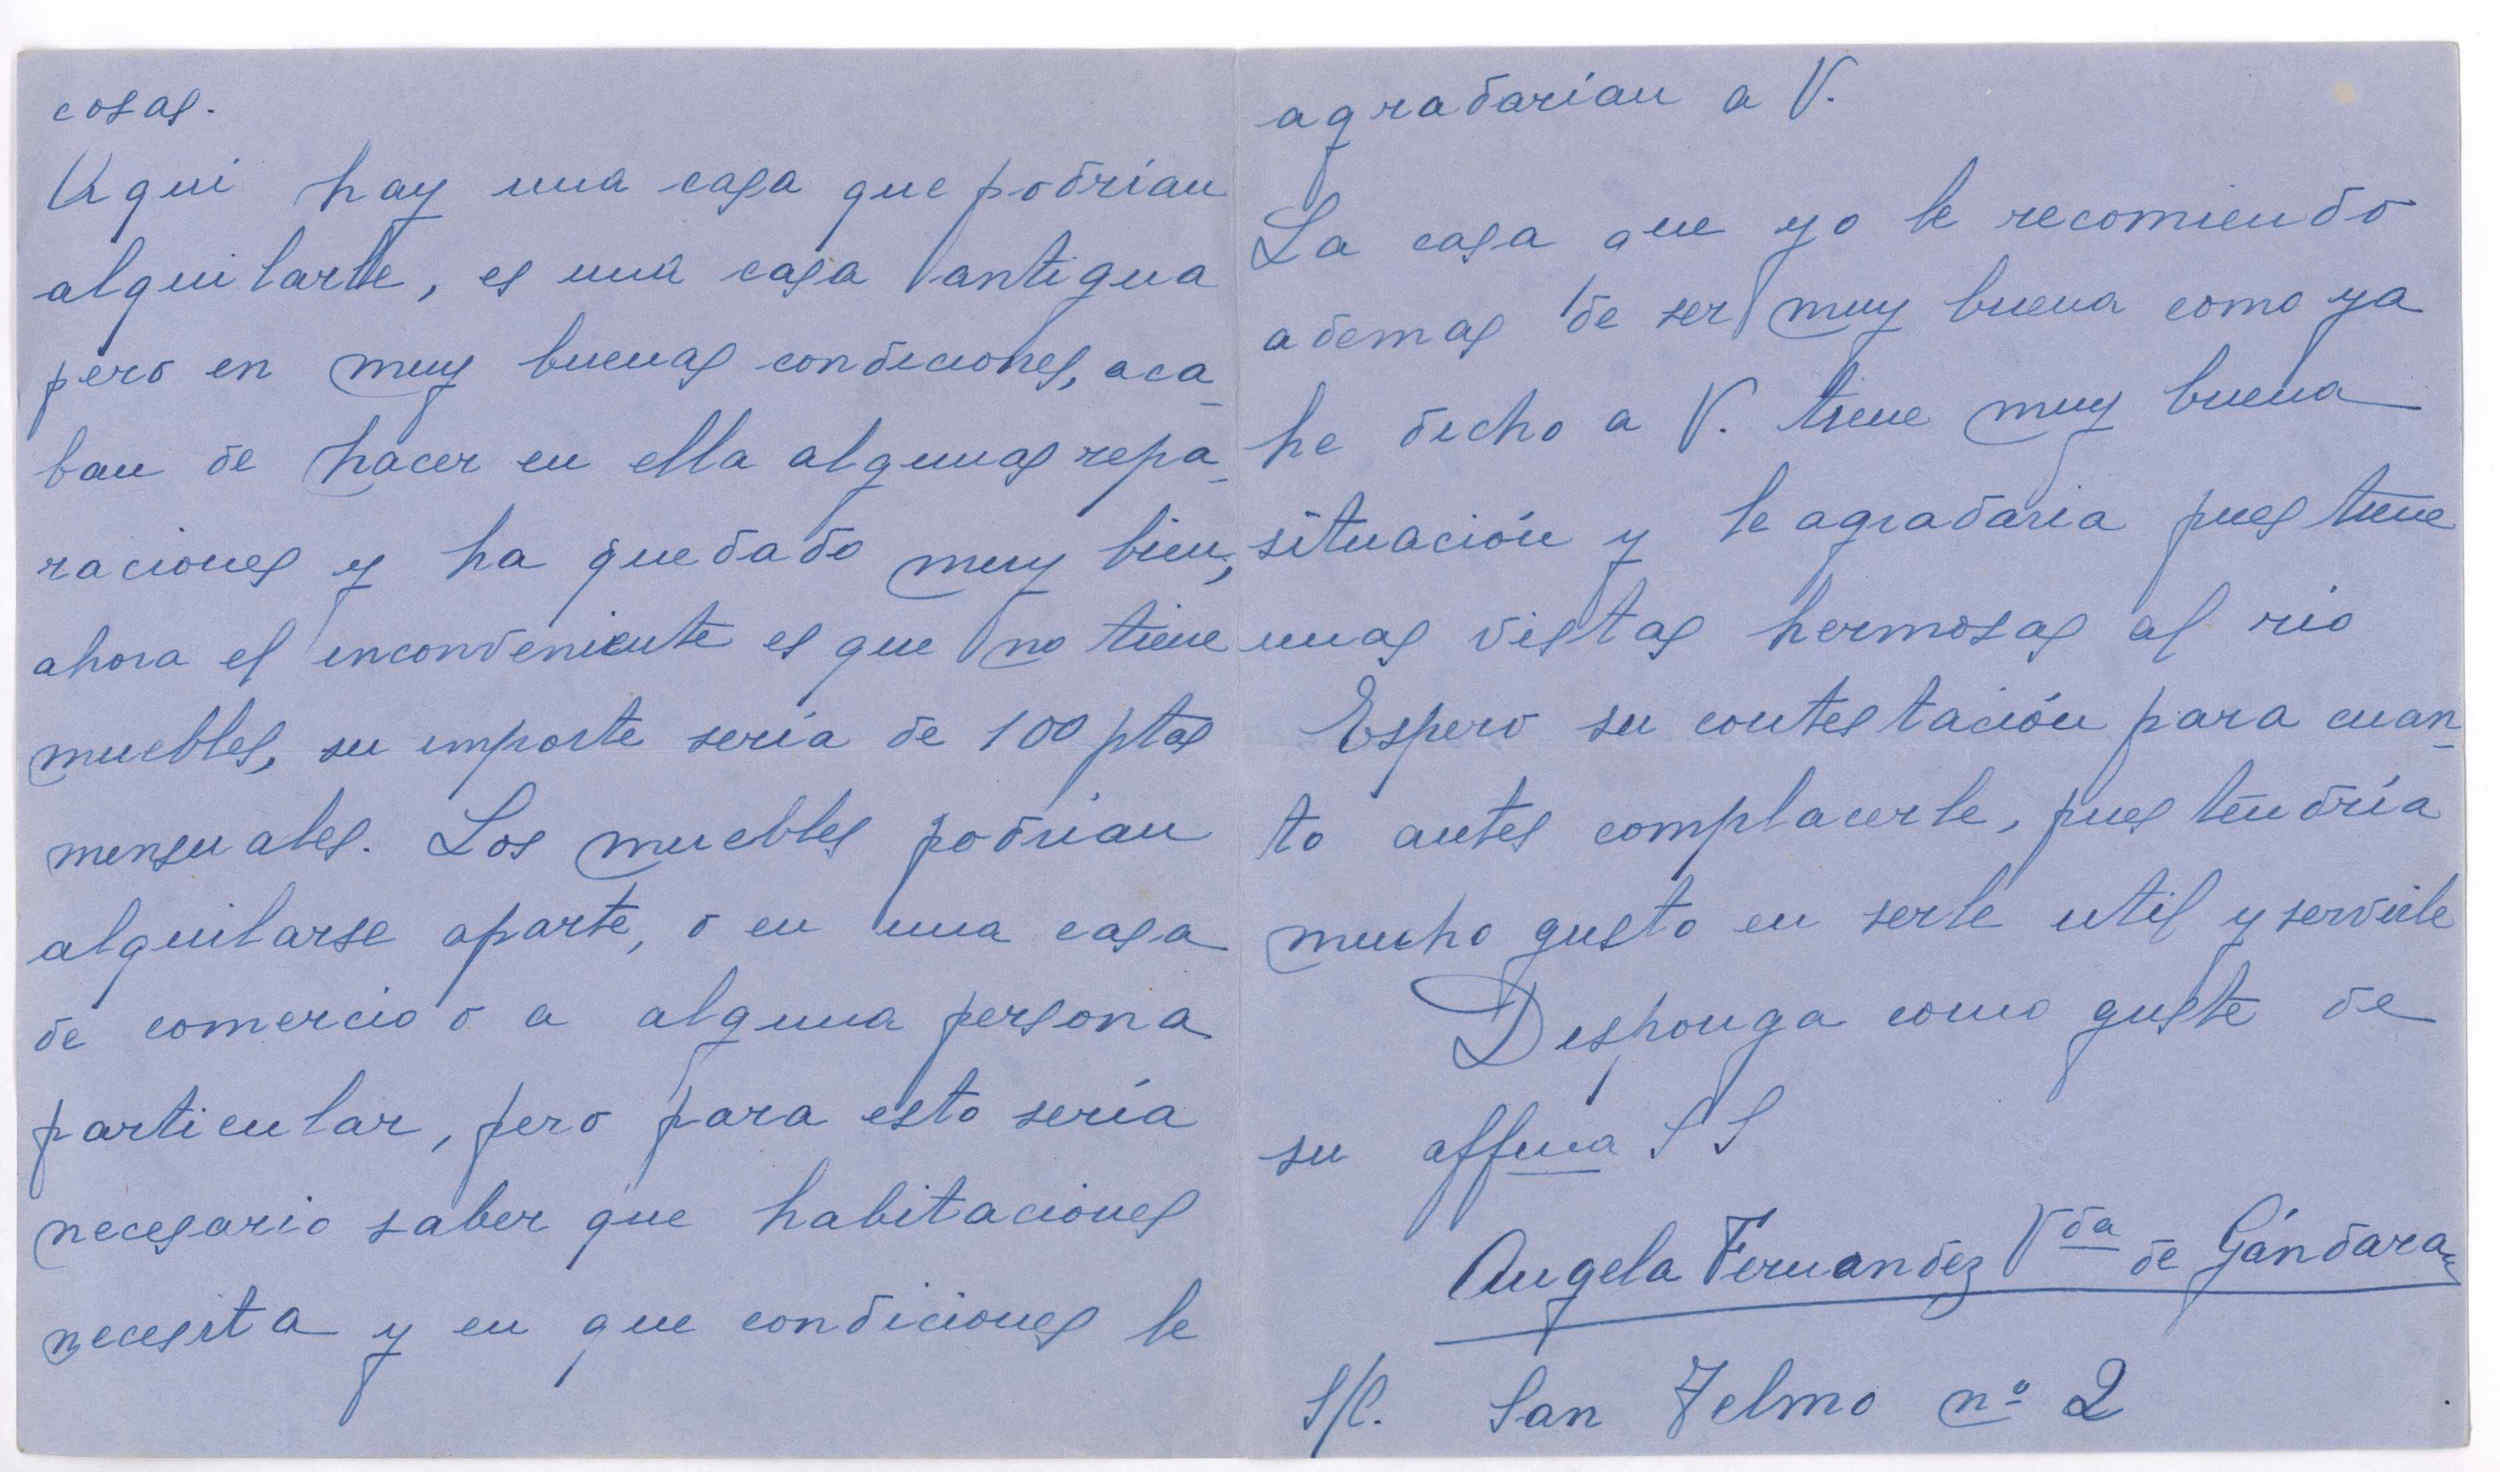 cosas.
Aqui hay una casa que podrían
alquilarle, es una casa antigua
pero en muy buenas condiciones, aca-
ban de hacer en ella algunas repa-
raciones y ha quedado muy bien,
ahora el inconveniente es que no tiene
muebles, su importe sería de 100 ptas
mensuales. Los muebles podrian
alquilarse aparte, o en una casa
de comercio o a alguna persona
particular, pero para esto sería
necesario saber que habitaciones
necesita y en que condiciones le
agradarían a V.
La casa que yo le recomiendo
ademas de ser muy buena como ya
he dicho a V. tiene muy buena
situación y le agradaria pues tiene
unas vistas hermosas al rio
Espero su contestación para cuan-
to antes complacerle, pues tendría
mucho gusto en serle util y servirle
Disponga como guste de
su affma S S
Angela Fernandez Vda de Gándara
S/C. San Telmo nº 2